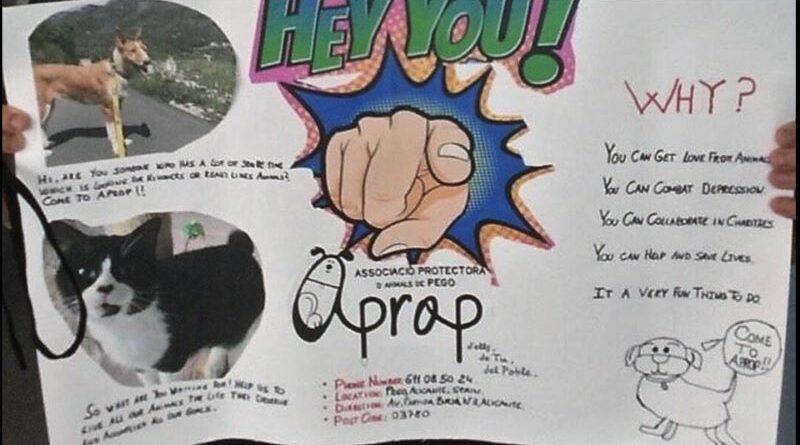 HEY YOU!
HI, ARE YOU SOMEONE WHO HAS A LOT OF SPARE TIME
WHICH IS LOOKING FOR KINDNESS OR ANIMALS?
COME TO APROP!!
ASSOCIACIÓ PROTECTORA
D'ANIMALS DE PEGO
aprop
d'ells,
de Tu,
del Poble.
SO WHAT ARE YOU WAITING FOR! HELP US TO
GIVE ALL OUR ANIMALS THE LIFE THEY DESERVE
AND ALL OUR GOALS.
• PHONE NUMBER: 611 08 50 24
• LOCATION: PEGO, ALICANTE, SPAIN.
• DIRECTION: AV. ALICANTE.
• POST CODE: 03780
WHY?
YOU CAN GET LOVE FROM ANIMALS
YOU CAN COMBAT DEPRESSION.
YOU CAN COLLABORATE IN CHARITIES.
YOU CAN HELP AND SAVE LIVES.
IT A VERY FUN THING TO DO
COME
TO
APROP!!